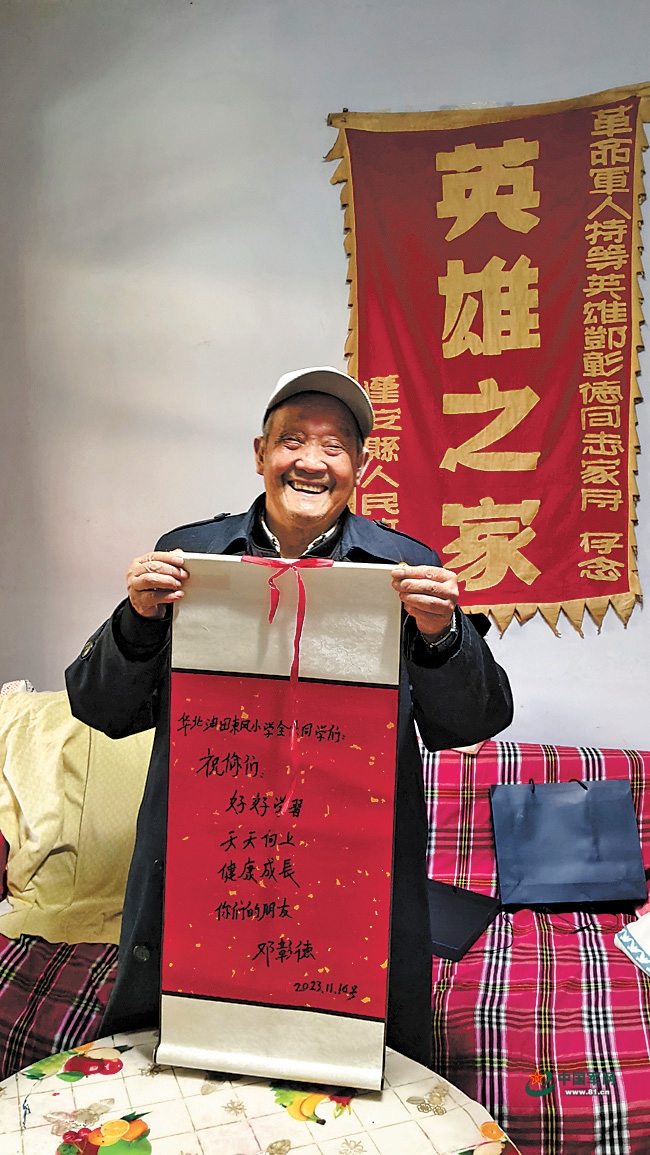 革命軍人特等英雄鄧彰德同志家属 存念
英雄之家
蓬安縣人民
华北油田東风小学全体同学们：
祝你们：
好好学習
天天向上
健康成長
你们的朋友
邓彰德
2023.11.16号
中国军网
www.81.cn